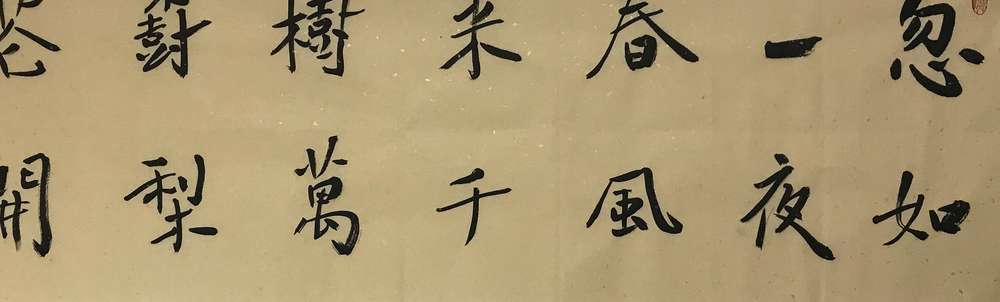 忽如
一夜
春風
来千
樹萬
樹梨
花開